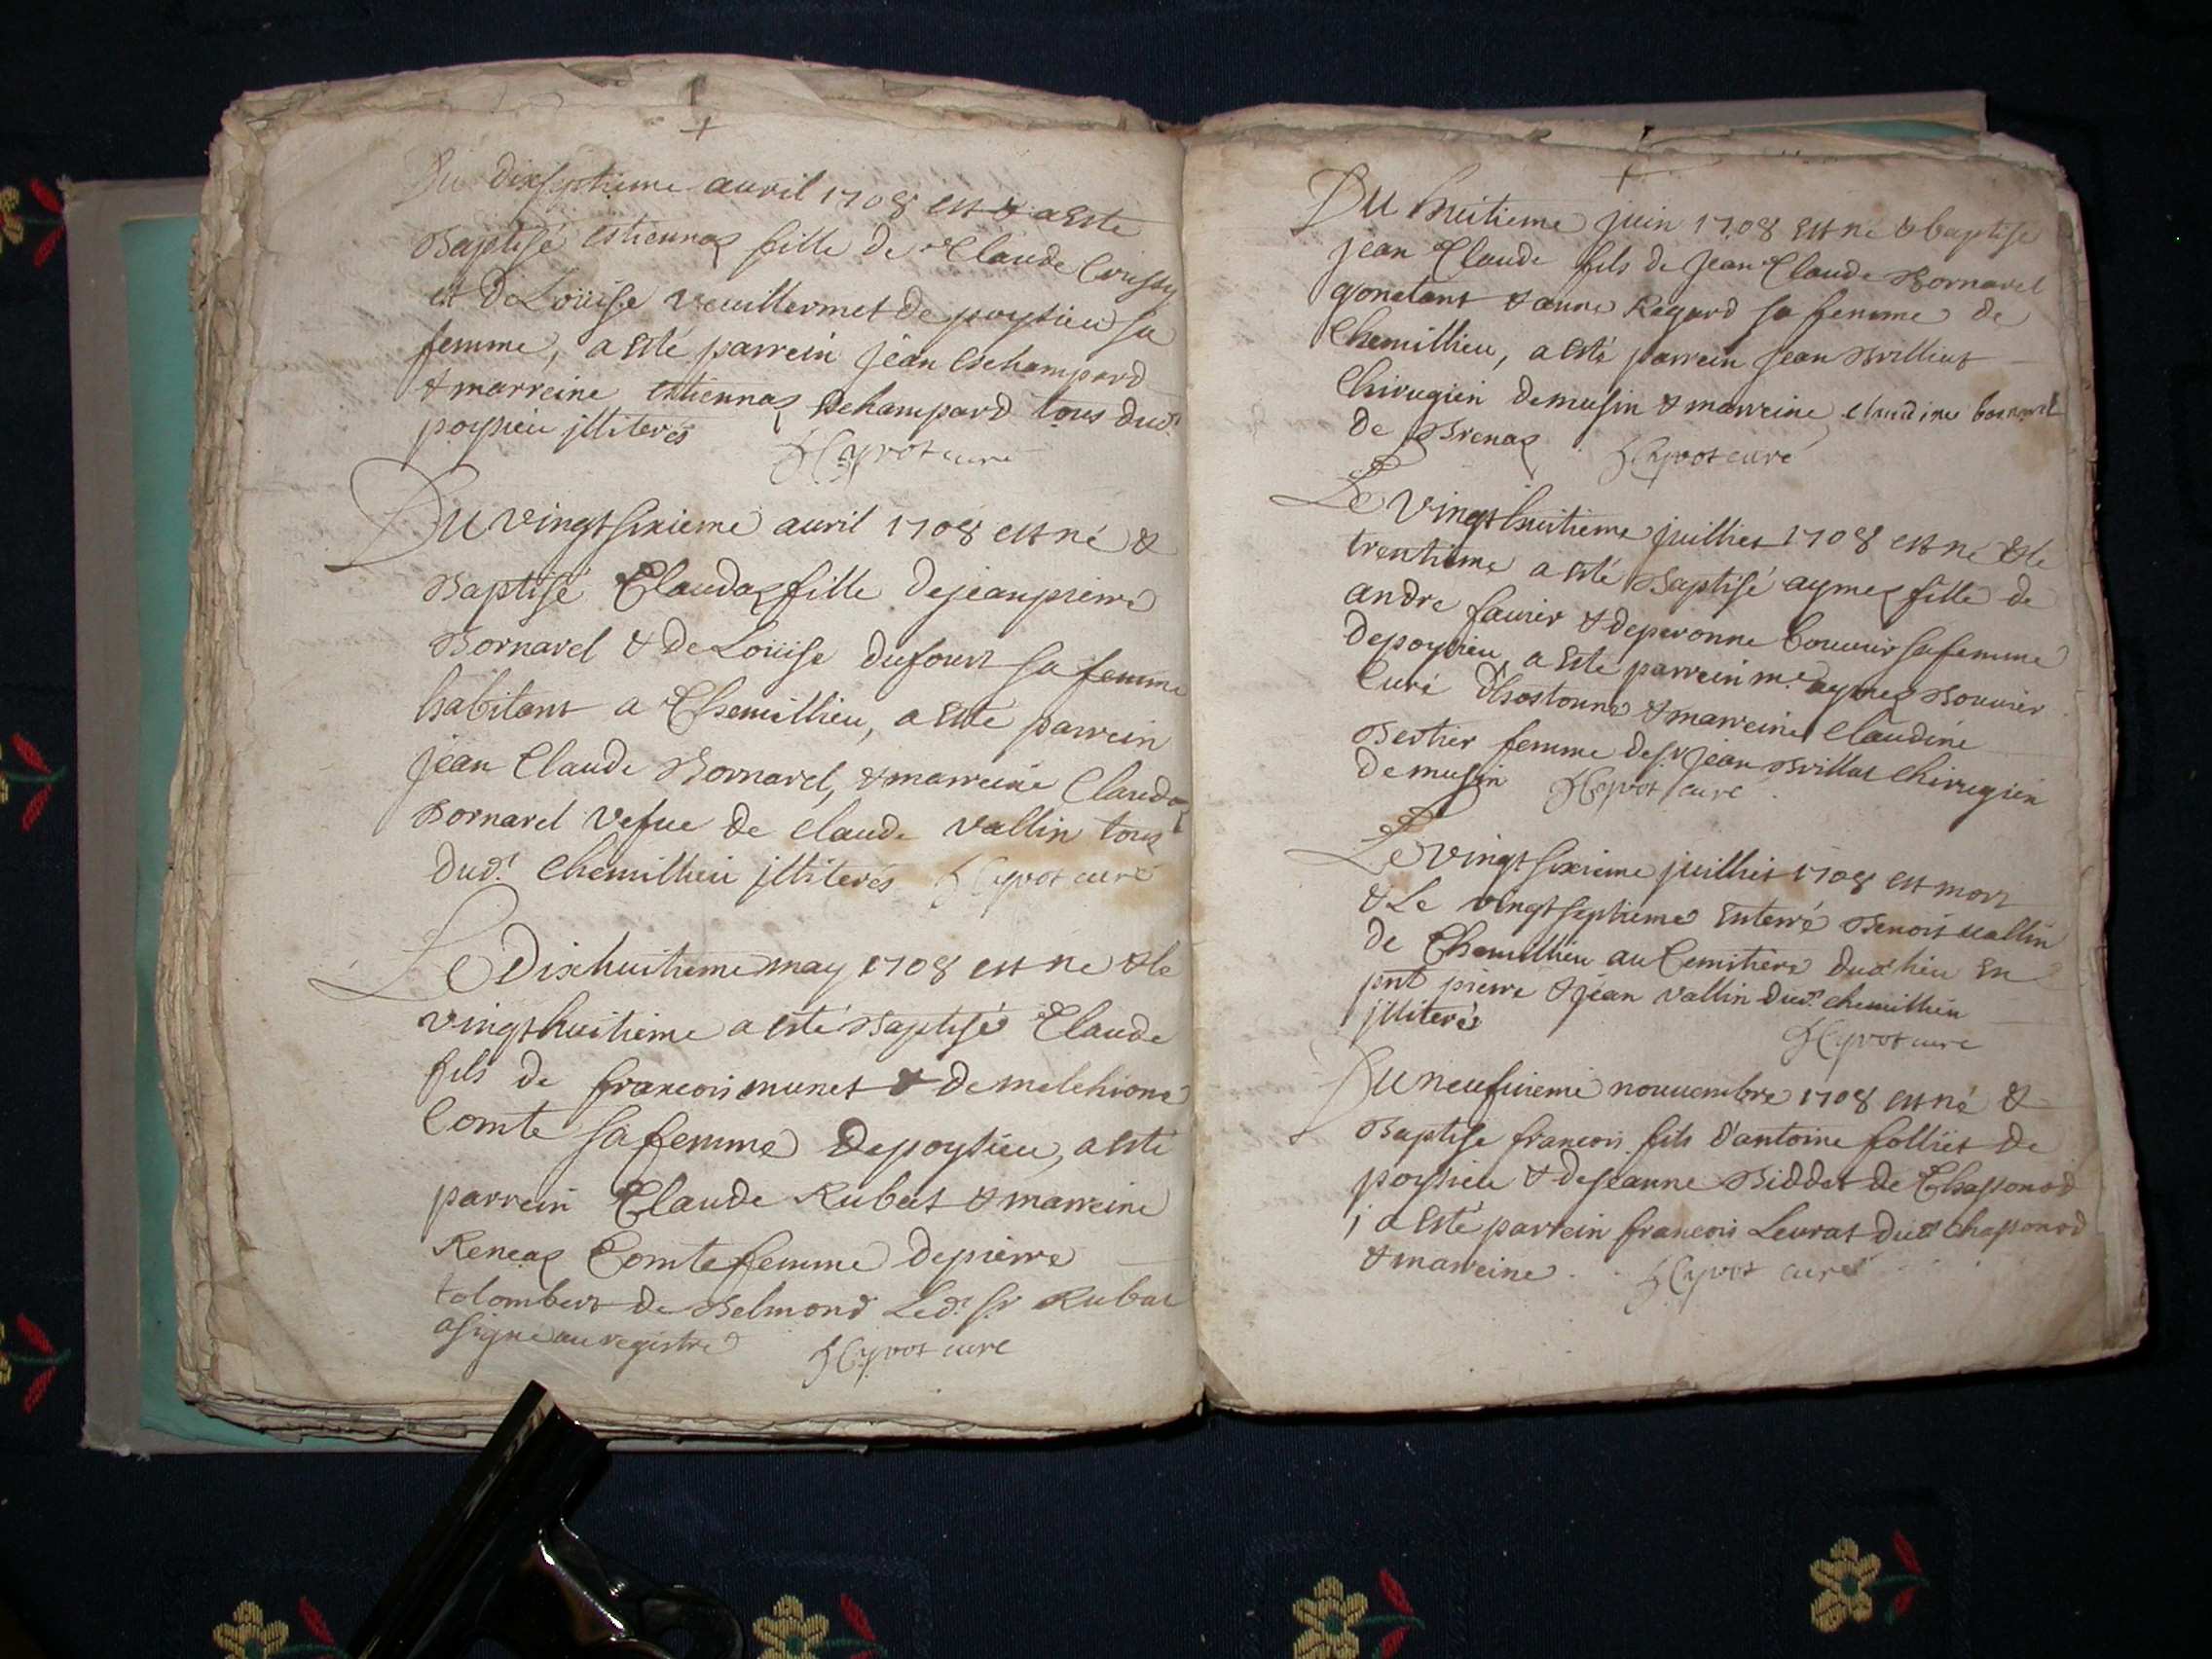 Du dixseptieme auril 1708 est & a Esté
Baptisé estiennaz fille de Claude
et de Loüise veuillermet de poysieu sa
femme, a esté parrein jean deschampard
& marreine estiennaz deschampard tous dud.t
poysieu jlliterés Hyvot curé
Du vingtsixieme auril 1708 est né &
Baptisé Claudaz fille de jeanpierre
Bornarel & de Loüise dufour sa femme
habitant a Chemillieu, a esté parrein
jean Claude Bornarel, & marreine Claudaz
Bornarel vefue de claude vallin tous
dud.t Chemillieu jlliterés Hyvot curé
Le Dixhuitieme may 1708 est né & le
vingthuitieme a esté Baptisé Claude
fils de francois munet & de melchionne
Comte sa femme de poysieu, a esté
parrein Claude Rubat & marreine
Reneaz Comte femme de pierre
tolombert de Belmond Led.t sr Rubat
a signé au registre Hyvot curé
Du huitieme juin 1708 Est né & baptisé
jean Claude fils de jean Claude Bornarel
& anne Regard sa femme de
Chemillieu, a esté parrein jean Brilliat
Chirugien de musin & marreine claudine bornarel
de Brenaz Hyvot curé
Le vingthuitieme juilliet 1708 est né & le
trentieme a esté Baptisé aymez fille de
andre faurer & de peronne bouuier sa femme
de poysieu a Esté parrein m.e aymez Bouuier
Curé d'hostonne & marreine Claudine
Bertier femme de sr jean Brillat chirurgien
de musin Hyvot curé
Le vingtsixieme juilliet 1708 est mort
& Le vingtseptieme Enterré Benoit vallin
de Chemillieu au Cemitiere dud.t lieu En
pnt pierre & jean vallin dud.t chemillieu
jlliterés Hyvot curé
Du neufuieme nouuembre 1708 est né &
Baptise francois fils d'antoine folliet de
poysieu & de jeanne Biddat de Chassonod
j a Esté parrein francois Leurat dud.t Chassonod
& marreine . . Hyvot curé